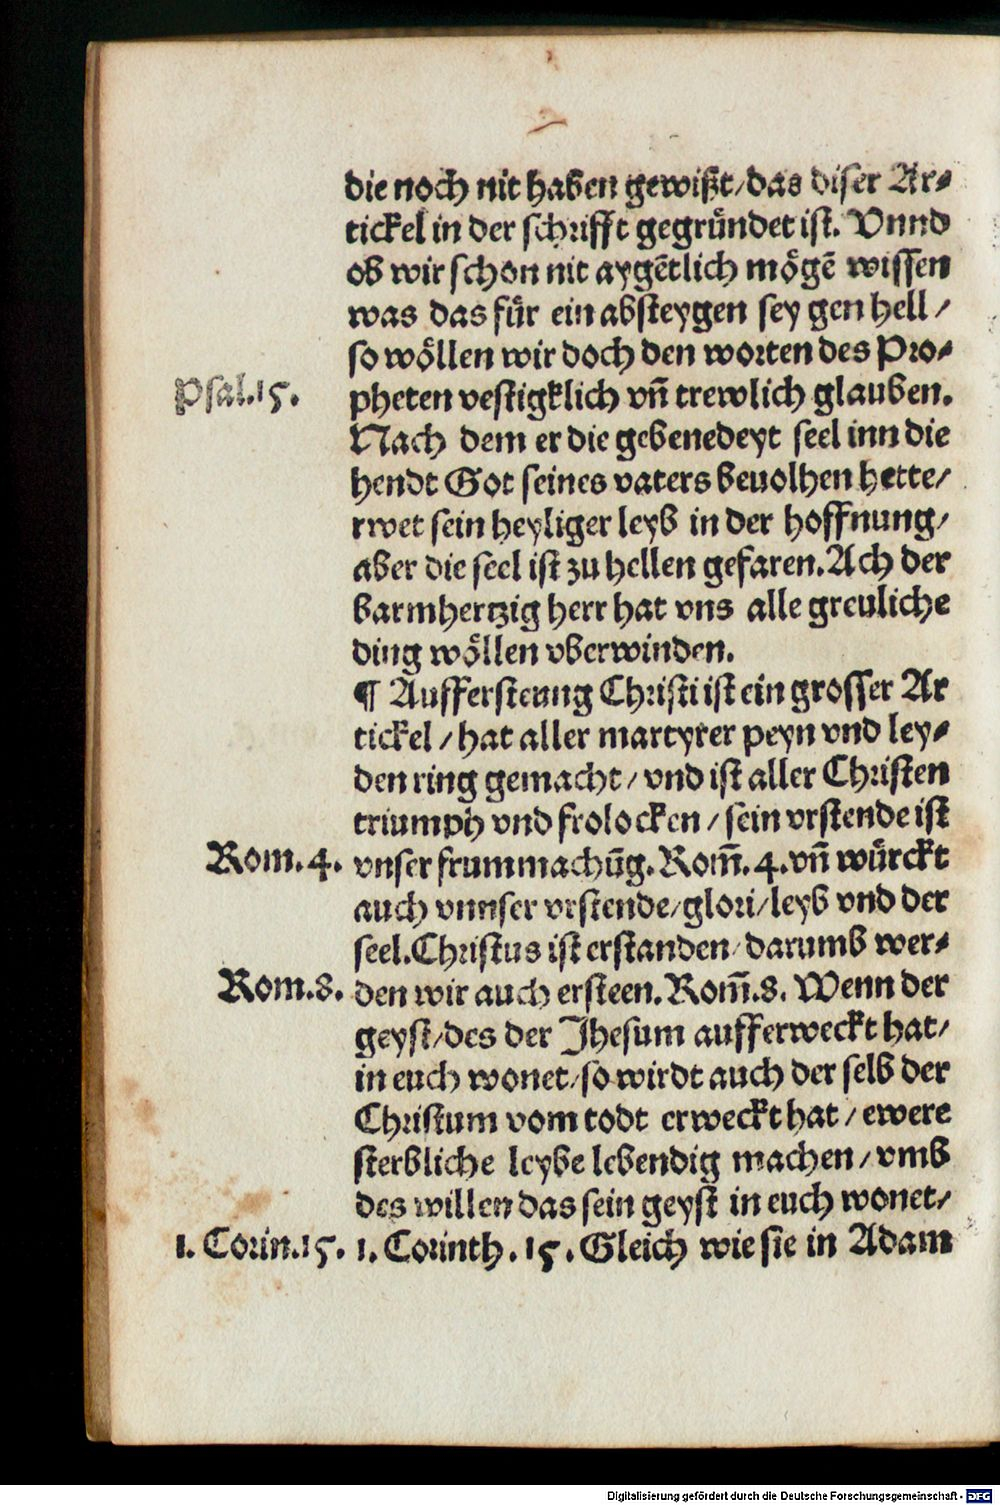 die noch nit haben gewißt/das diser Ar⸗
tickel in der schrifft gegründet ist. Vnnd
ob wir schon nit aygētlich mögē wissen
was das für ein absteygen sey gen hell/
so wöllen wir doch den worten des Pro⸗
Psal.15.
pheten vestigklich vñ trewlich glauben.
Nach dem er die gebenedeyt seel inn die
hendt Got seines vaters beuolhen hette/
rwet sein heyliger leyb in der hoffnung/
aber die seel ist zu hellen gefaren. Ach der
barmhertzig herr hat vns alle greuliche
ding wöllen vberwinden.
¶ Auffersteung Christi ist ein grosser Ar
tickel/hat aller martyrer peyn vnd ley⸗
den ring gemacht/vnd ist aller Christen
triumph vnd frolocken/sein vrstende ist
Rom.4.
vnser frummachūg. Rom̄.4.vñ würckt
auch vnnser vrstende/glori/leyb vnd der
seel.Christus ist erstanden/darumb wer⸗
Rom.8.
den wir auch ersteen. Rom̄.8. Wenn der
geyst/des der Jhesum aufferweckt hat/
in euch wonet/so wirdt auch der selb der
Christum vom todt erweckt hat/ewere
sterbliche leybe lebendig machen/vmb
des willen das sein geyst in euch wonet/
1. Corin.15.
1. Corinth.15. Gleich wie sie in Adam
Digitalisierung gefördert durch die Deutsche Forschungsgemeinschaft - DFG